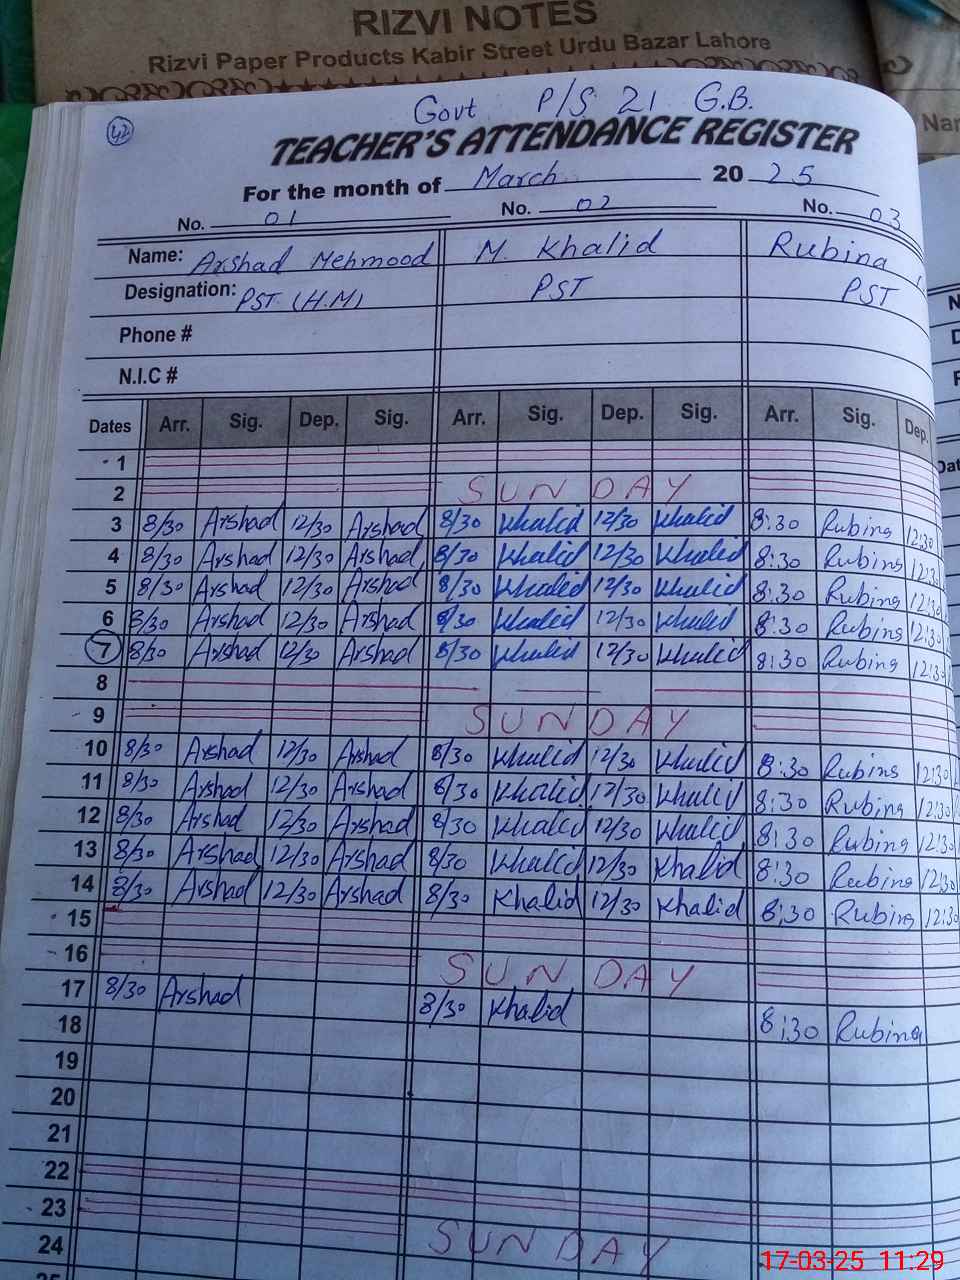 RIZVI NOTES
Rizvi Paper Products Kabir Street Urdu Bazar Lahore
Nar
42
Govt P/S 21 G.B.
TEACHER'S ATTENDANCE REGISTER
For the month of March 20 25
No. 01 No. 02 No. 03
Name: Arshad Mehmood M. Khalid Rubina
Designation: PST (H.M) PST PST
Phone #
N.I.C #
Dates Arr. Sig. Dep. Sig. Arr. Sig. Dep. Sig. Arr. Sig. Dep.
1
2 SUNDAY
3 8/30 Arshad 12/30 Arshad 8/30 Khalid 12/30 Khalid 8:30 Rubina 12:30
4 8/30 Arshad 12/30 Arshad 8/30 Khalid 12/30 Khalid 8:30 Rubina 12:30
5 8/30 Arshad 12/30 Arshad 8/30 Khalid 12/30 Khalid 8:30 Rubina 12:30
6 8/30 Arshad 12/30 Arshad 8/30 Khalid 12/30 Khalid 8:30 Rubina 12:30
7 8/30 Arshad 12/30 Arshad 8/30 Khalid 12/30 Khalid 8:30 Rubina 12:30
8
9 SUNDAY
10 8/30 Arshad 12/30 Arshad 8/30 Khalid 12/30 Khalid 8:30 Rubina 12:30
11 8/30 Arshad 12/30 Arshad 8/30 Khalid 12/30 Khalid 8:30 Rubina 12:30
12 8/30 Arshad 12/30 Arshad 8/30 Khalid 12/30 Khalid 8:30 Rubina 12:30
13 8/30 Arshad 12/30 Arshad 8/30 Khalid 12/30 Khalid 8:30 Rubina 12:30
14 8/30 Arshad 12/30 Arshad 8/30 Khalid 12/30 Khalid 8:30 Rubina 12:30
15
16 SUNDAY
17 8/30 Arshad 8/30 Khalid 8:30 Rubina
18
19
20
21
22
23 SUNDAY
24
17-03-25 11:29